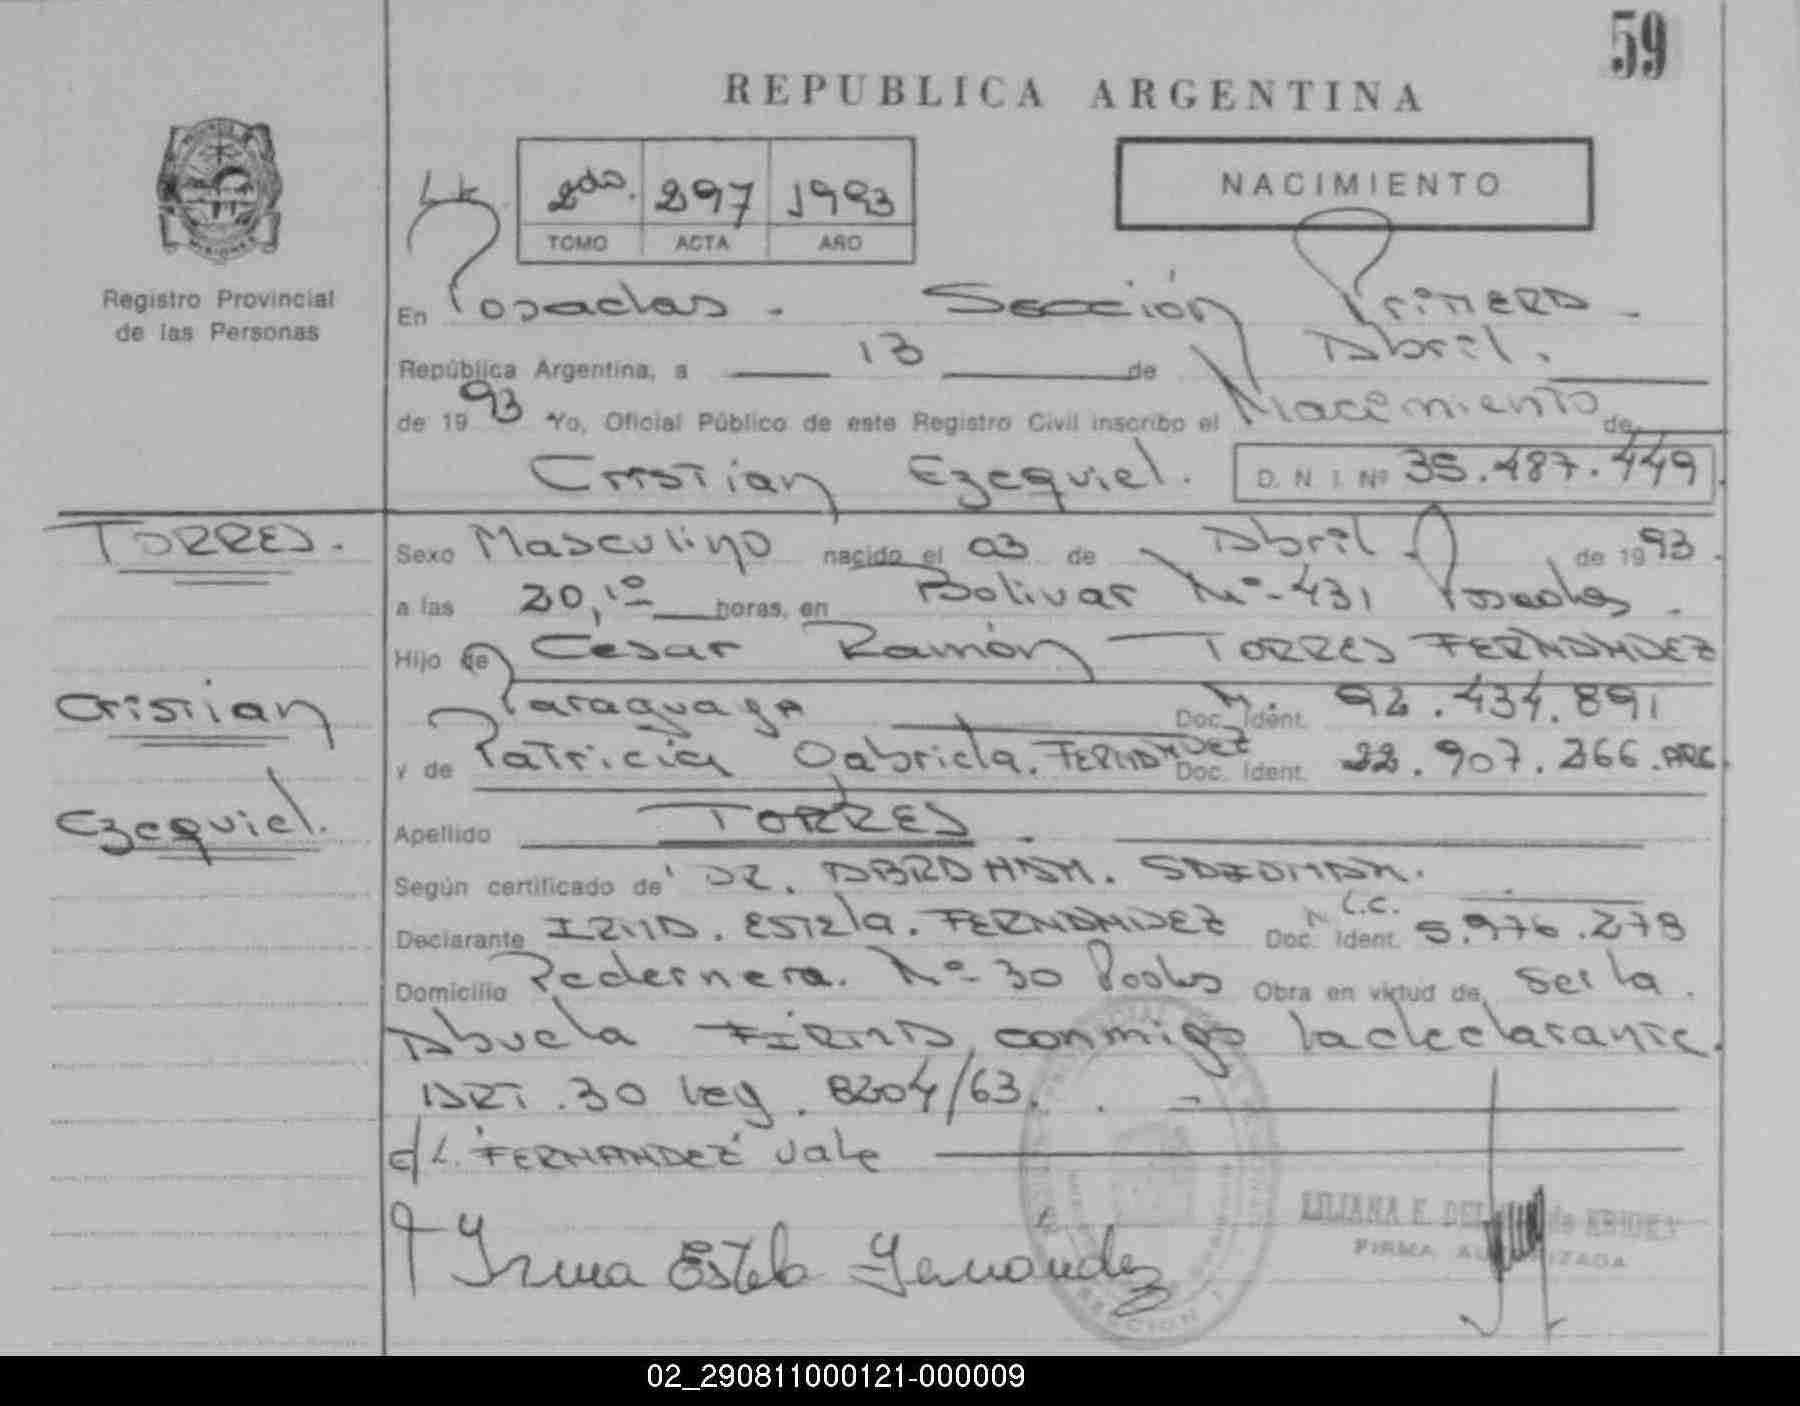 59
REPUBLICA ARGENTINA
2do. 297 1993
TOMO ACTA AÑO
NACIMIENTO
Registro Provincial
de las Personas
En Posadas. Sección Primera.
República Argentina, a 13 de Abril.
de 1993 Yo, Oficial Público de este Registro Civil inscribo el Nacimiento de
Cristian Ezequiel. D. N. I. Nº 35.487.449
TORRES.
Cristian
Ezequiel.
Sexo Masculino nacido el 03 de Abril de 1993.
a las 20,10 horas, en Bolivar Nº 431 Posadas.
Hijo de César Ramón TORRES FERNANDEZ
Paraguaya Doc. Ident. Nº 92.434.891
y de Patricia Gabriela. FERNANDEZ Doc. Ident. 22.907.266. ARG
Apellido TORRES.
Según certificado de Dr. ABRAHAM.
Declarante IRMA. Estela. FERNANDEZ Doc. Ident. N L.C. 5.976.278
Domicilio Pedernera. Nº 30 Psdas Obra en virtud de ser la
Abuela FIRMA conmigo la declarante.
ART. 30 ley. 8204/63.
e/L. "FERNANDEZ" vale
Irma Estela Fernandez
LILIANA E. DEL de
FIRMA AUTORIZADA
02_290811000121-000009